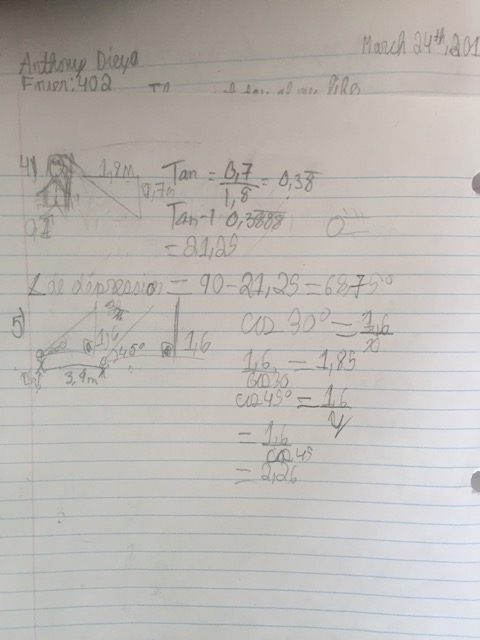 March 24th, 201
Anthony Dieya
Foyer: 402
4) 1,8m 0,7m Tan = 0,7/1,8 = 0,38
Tan-1 0,3888
= 21,25
∠ de dépression = 90 - 21,25 = 68,75°
5) 1,6 45° 1,6 3,4m
cos 30° = 1,6/x
1,6/cos 30 = 1,85
cos 45° = 1,6/y
= 1,6/cos 45
= 2,26